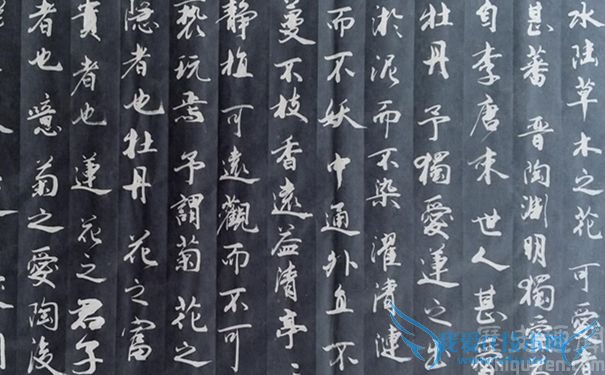 水陸草木之花可愛
甚蕃晉陶淵明獨愛
自李唐来世人甚
牡丹予獨愛蓮之出
淤泥而不染濯清漣
而不妖中通外直不
蔓不枝香遠益清亭
静植可遠觀而不可
褻玩焉予謂菊花之
隱者也牡丹花之富
貴者也蓮花之君子
者也噫菊之愛陶後